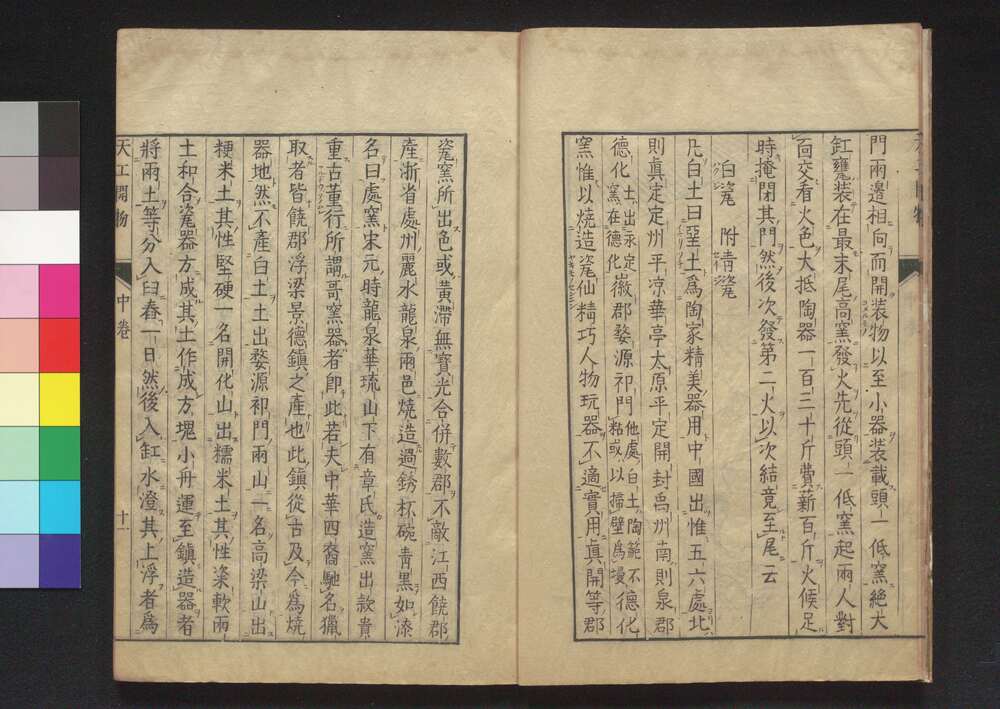 門兩邊相向而開裝物以至小器裝載頭一低窯絕大
缸甕裝在最末尾高窯發火先從頭一低窯起兩人對
面交看火色大抵陶器一百三十斤費薪百斤火候足
時掩閉其門然後次發第二火以次結竟至尾云
白瓷 附青瓷
凡白土曰堊土爲陶家精美器用中國出惟五六處北
則眞定定州平凉華亭太原平定開封禹州南則泉郡
德化土出永定窯在德化徽郡婺源祁門他處白土陶範不粘或以掃壁爲墁德化
窯惟以燒造瓷仙精巧人物玩器不適實用眞開等郡
瓷窯所出色或黃滯無寶光合併數郡不敵江西饒郡
產浙省處州麗水龍泉兩邑燒造過銹杯碗青黑如漆
名曰處窯宋元時龍泉華琉山下有章氏造窯出款貴
重古董行所謂哥窯器者卽此若夫中華四裔馳名獵
取者皆饒郡浮梁景德鎮之產也此鎮從古及今爲燒
器地然不產白土土出婺源祁門兩山一名高梁山出
粳米土其性堅硬一名開化山出糯米土其性粢軟兩
土和合瓷器方成其土作成方塊小舟運至鎮造器者
將兩土等分入臼舂一日然後入缸水澄其上浮者爲
天工開物 中卷 十一